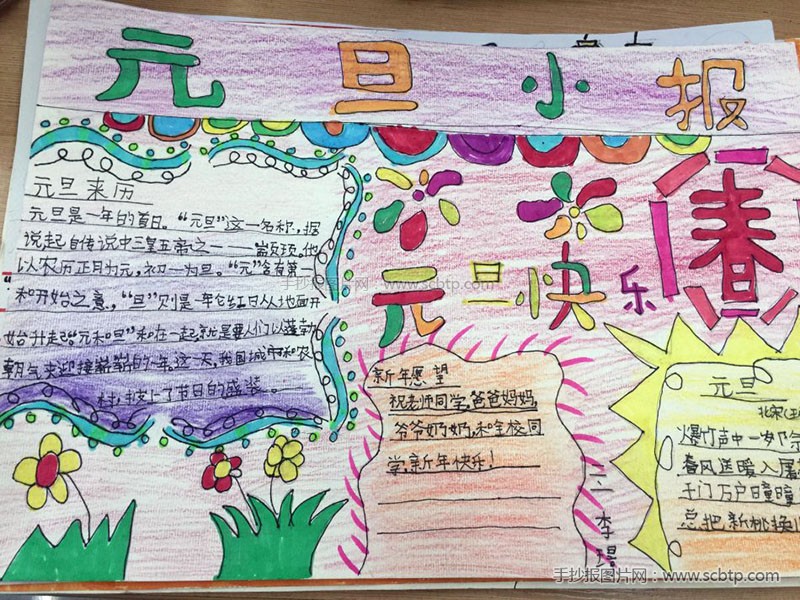 元旦小报
元旦来历
元旦是一年的首日。“元旦”这一名称,据
说,起自传说中三皇五帝之一——颛顼,他
以农历正月为元,初一为旦。“元”含有第一
和开始之意,“旦”则是一轮红日从地面开
始升起“元和旦”和在一起,就是要人们以蓬勃
朝气来迎接崭新的一年。这一天,我国城市和农
村披上了节日的盛装。
元旦快乐
春
新年愿望
祝老师同学,爸爸妈妈,
爷爷奶奶,和全校同
学,新年快乐!
三 李
元旦
北宋(王
爆竹声中一岁除
春风送暖入屠
千门万户曈曈
总把新桃换
手抄报图片网:www.scbtp.com